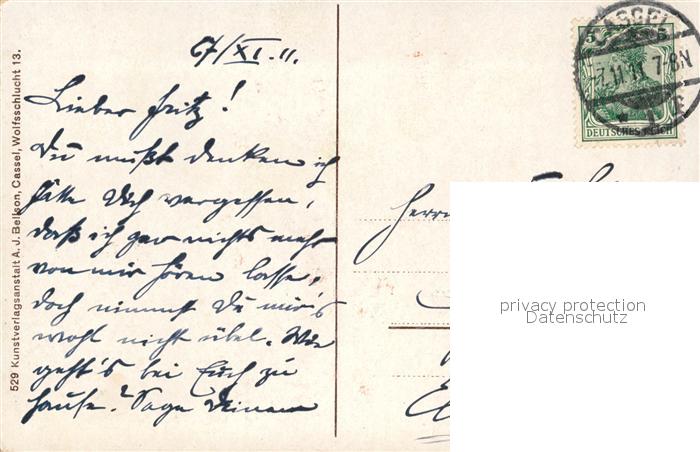 67/XI.11.
Lieber Fritz!
Du mußt denken ich
hätte Dich vergessen,
daß ich gar nichts mehr
von mir hören lasse,
doch nimmst Du mir's
wohl nicht übel. Wie
geht's bei Euch zu
Hause? Sage Deinem
529 Kunstverlagsanstalt A. J. Bellson, Cassel, Wolfsschlucht 13.
CASSEL
-7.11.11 7-8N
1
5 5
DEUTSCHES REICH
Herrn
privacy protection
Datenschutz